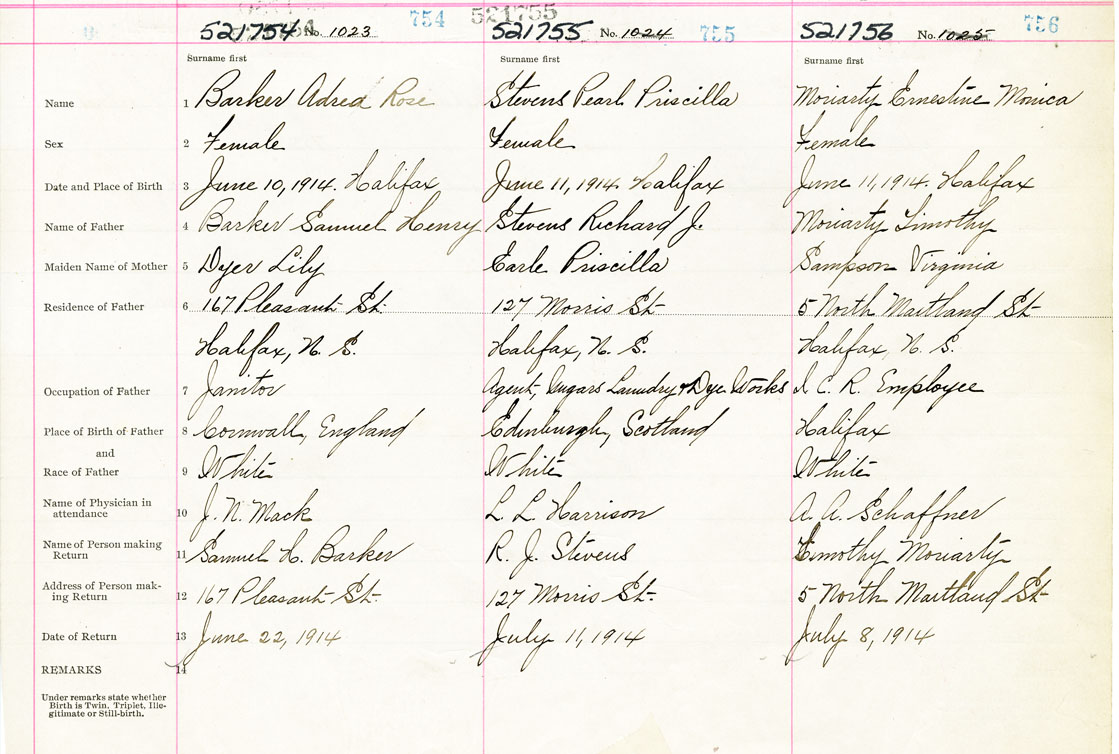 521754 No. 1023 754 521755 No. 1024 755 521756 No. 1025 756
521755
Surname first Surname first Surname first
Name 1 Barker Adred Rose Stevens Pearl Priscilla Moriarty Ernestine Monica
Sex 2 Female Female Female
Date and Place of Birth 3 June 10, 1914. Halifax June 11, 1914. Halifax June 11, 1914. Halifax
Name of Father 4 Barker Samuel Henry Stevens Richard J. Moriarty Timothy
Maiden Name of Mother 5 Dyer Lily Earle Priscilla Sampson Virginia
Residence of Father 6 167 Pleasant St. 127 Morris St 5 North Maitland St
Halifax, N. S. Halifax, N. S. Halifax, N. S.
Occupation of Father 7 Janitor Agent, Ungars Laundry & Dye Works I. C. R. Employee
Place of Birth of Father 8 Cornwall, England Edinburgh, Scotland Halifax
and
Race of Father 9 White White White
Name of Physician in
attendance 10 J. N. Mack L. L. Harrison A. A. Schaffner
Name of Person making
Return 11 Samuel H. Barker R. J. Stevens Timothy Moriarty
Address of Person mak-
ing Return 12 167 Pleasant St. 127 Morris St. 5 North Maitland St
Date of Return 13 June 22, 1914 July 11, 1914 July 8, 1914
REMARKS 14
Under remarks state whether
Birth is Twin, Triplet, Ille-
gitimate or Still-birth.